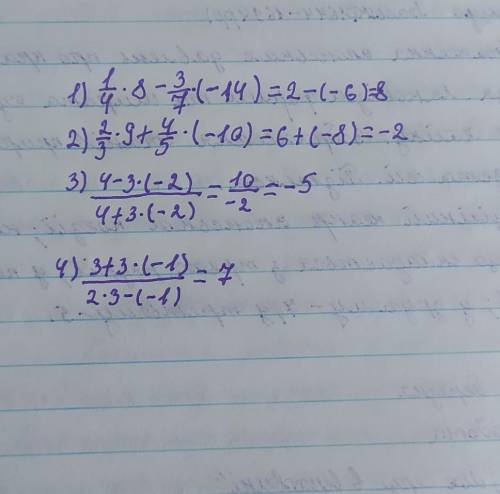 1) 1/4 · 8 - 3/7 · (-14) = 2 - (-6) = 8
2) 2/3 · 9 + 4/5 · (-10) = 6 + (-8) = -2
3) (4-3·(-2))/(4+3·(-2)) = 10/-2 = -5
4) (3+3·(-1))/(2·3-(-1)) = 7